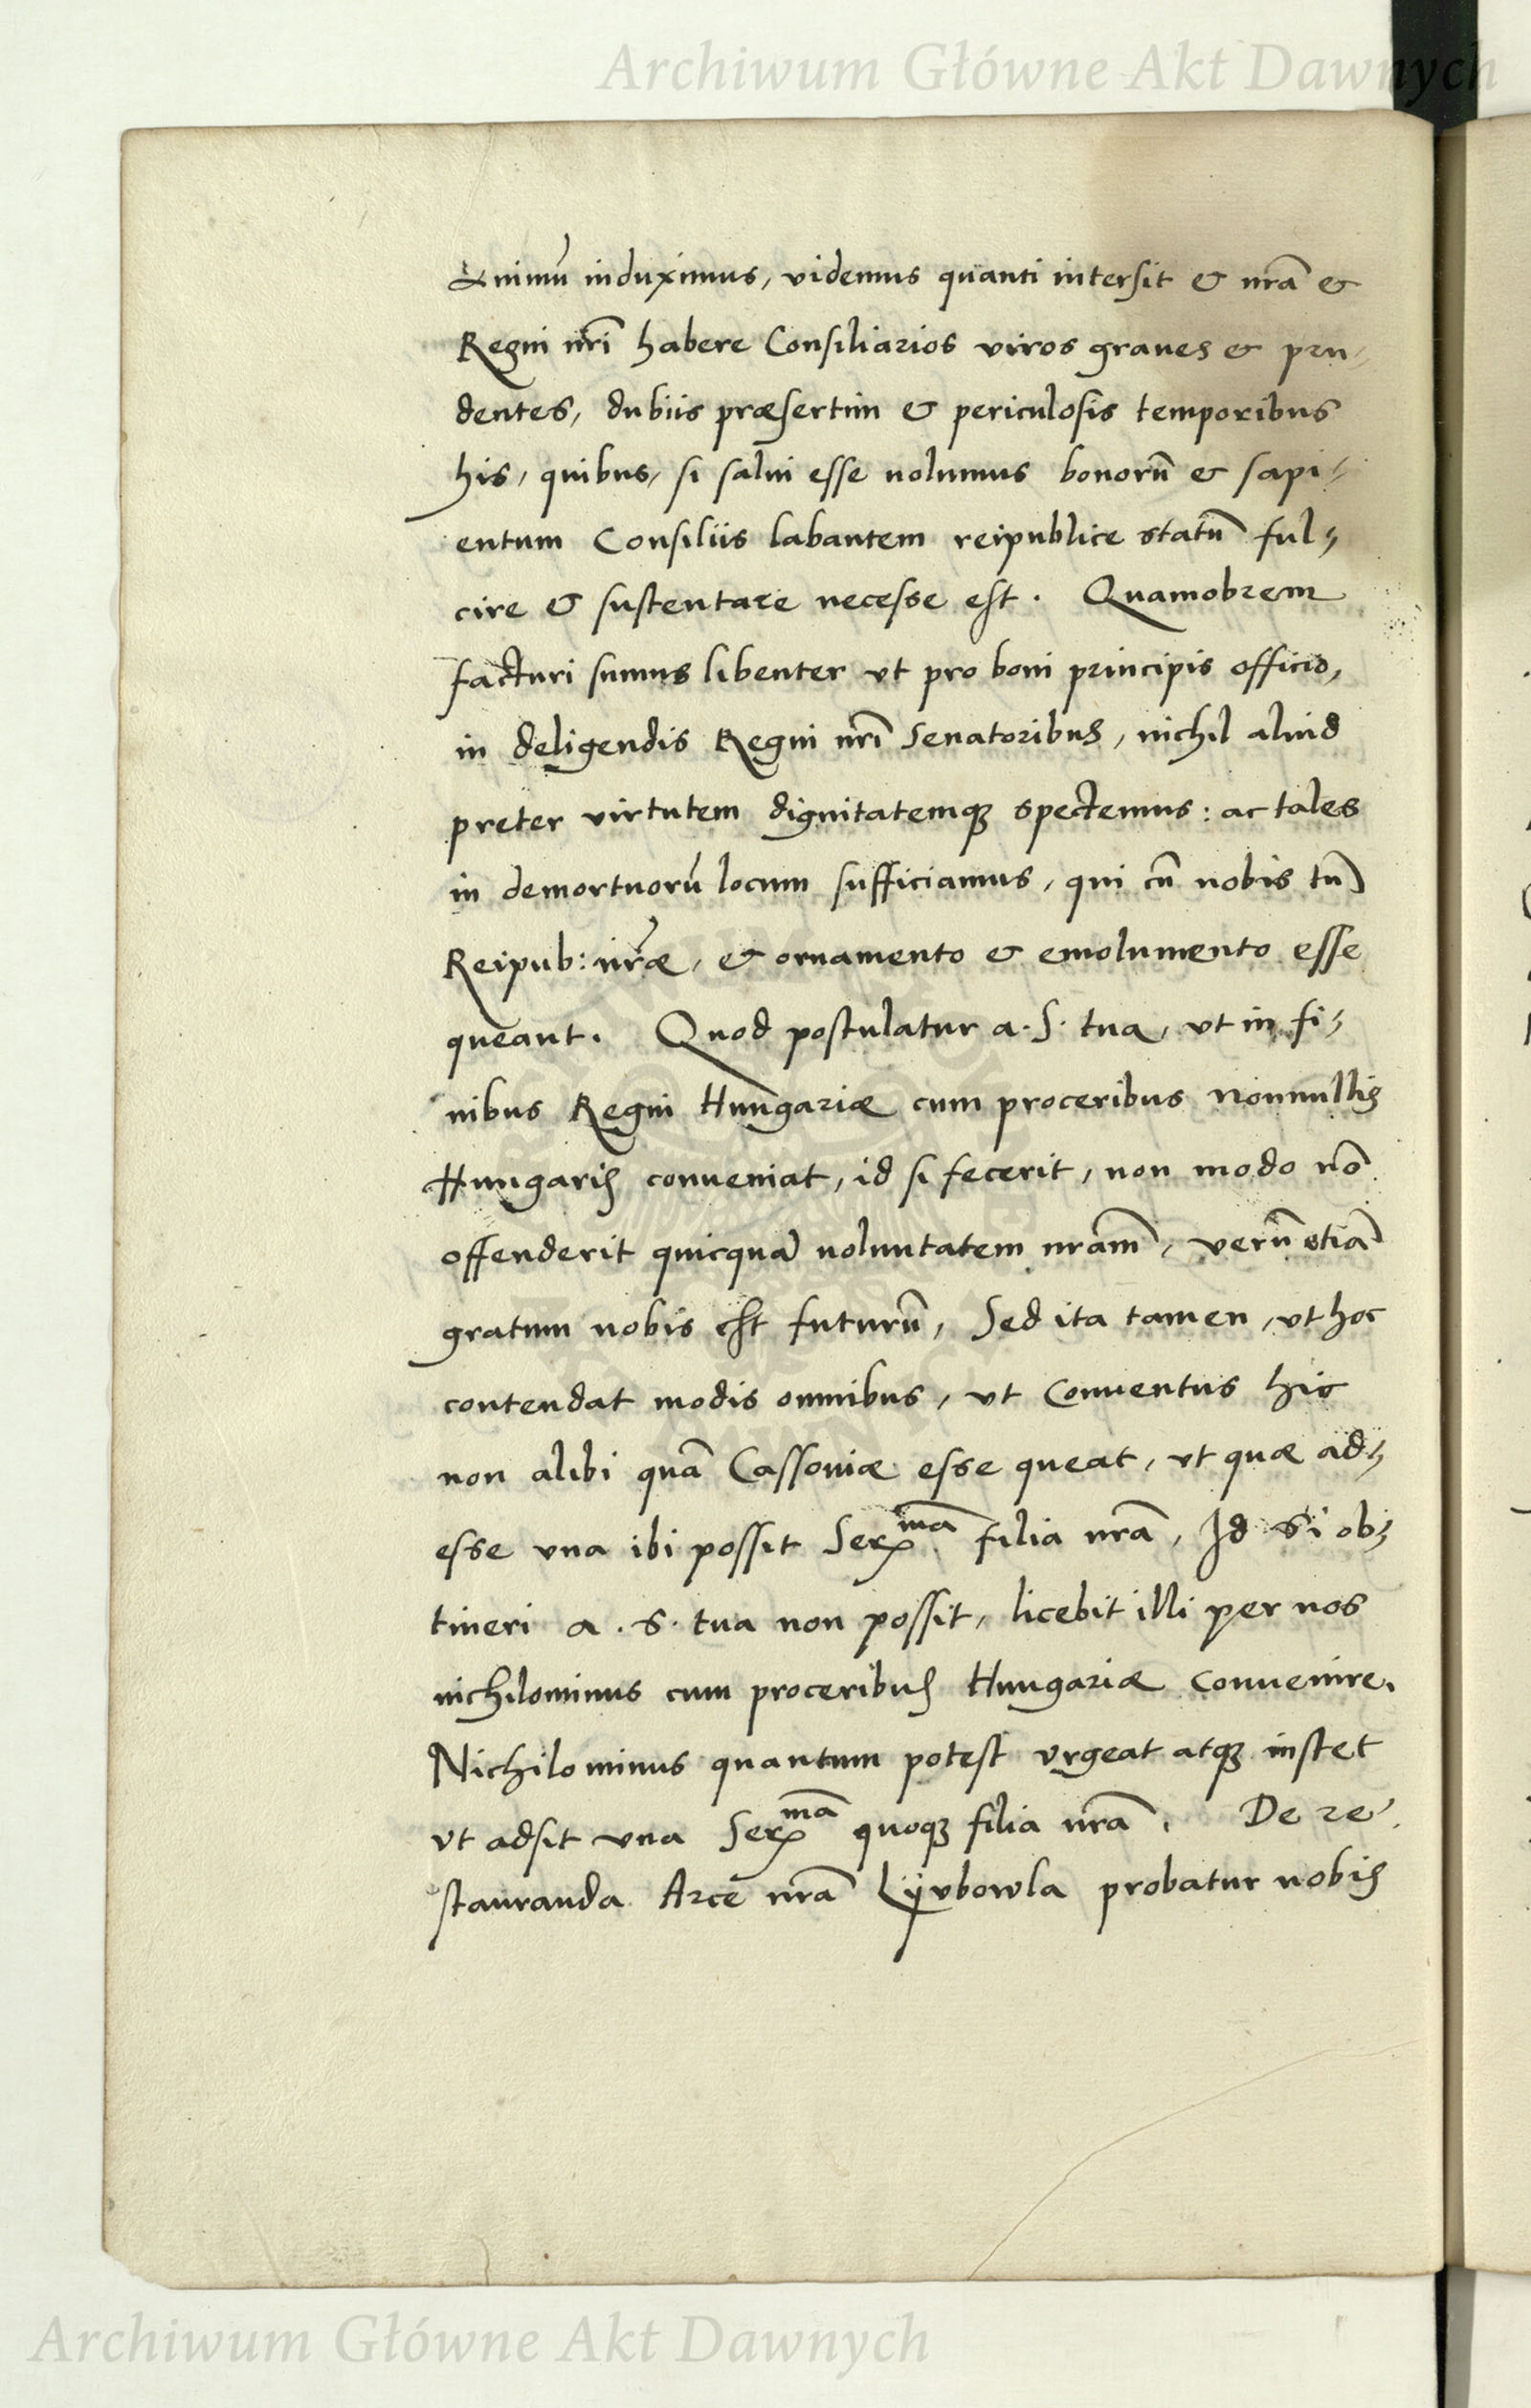 Archiwum Główne Akt Dawnych
Animũ induximus, videmus quanti intersit & nrã &
Regni nrĩ habere Consiliarios viros graues & pru-
dentes, dubiis præsertim & periculosis temporibus
his, quibus, si salui esse uolumus bonorũ & sapi-
entum Consiliis labantem reipublice statũ ful-
cire & sustentare necesse est. Quamobrem
facturi sumus libenter vt pro boni principis officio,
in deligendis Regni nrĩ Senatoribus, nichil aliud
preter virtutem dignitatemqꝫ spectemus: ac tales
in demortuorũ locum sufficiamus, qui cũ nobis tũ
Reipub: nr̃æ, & ornamento & emolumento esse
queant. Quod postulatur a. S. tua, vt in fi-
nibus Regni Hungariæ cum proceribus nonnullis
Hungaris conueniat, id si fecerit, non modo nõ
offenderit quicquã uoluntatem nram̃, verũ etiã
gratum nobis est futurũ, Sed ita tamen, vt hoc
contendat modis omnibus, vt Conuentus hic
non alibi quã Cassouiæ esse queat, vt quæ ad-
esse vna ibi possit Serꝰᵐᵃ filia nrã, Id si ob-
tineri a. S. tua non possit, licebit illi per nos
nichilominus cum proceribus Hungariæ Conuenire.
Nichilominus quantum potest vrgeat atqꝫ instet
vt adsit vna Serꝰᵐᵃ quoqꝫ filia nrã. De re
stauranda Arce nrã Lÿvbowla probatur nobis
Archiwum Główne Akt Dawnych